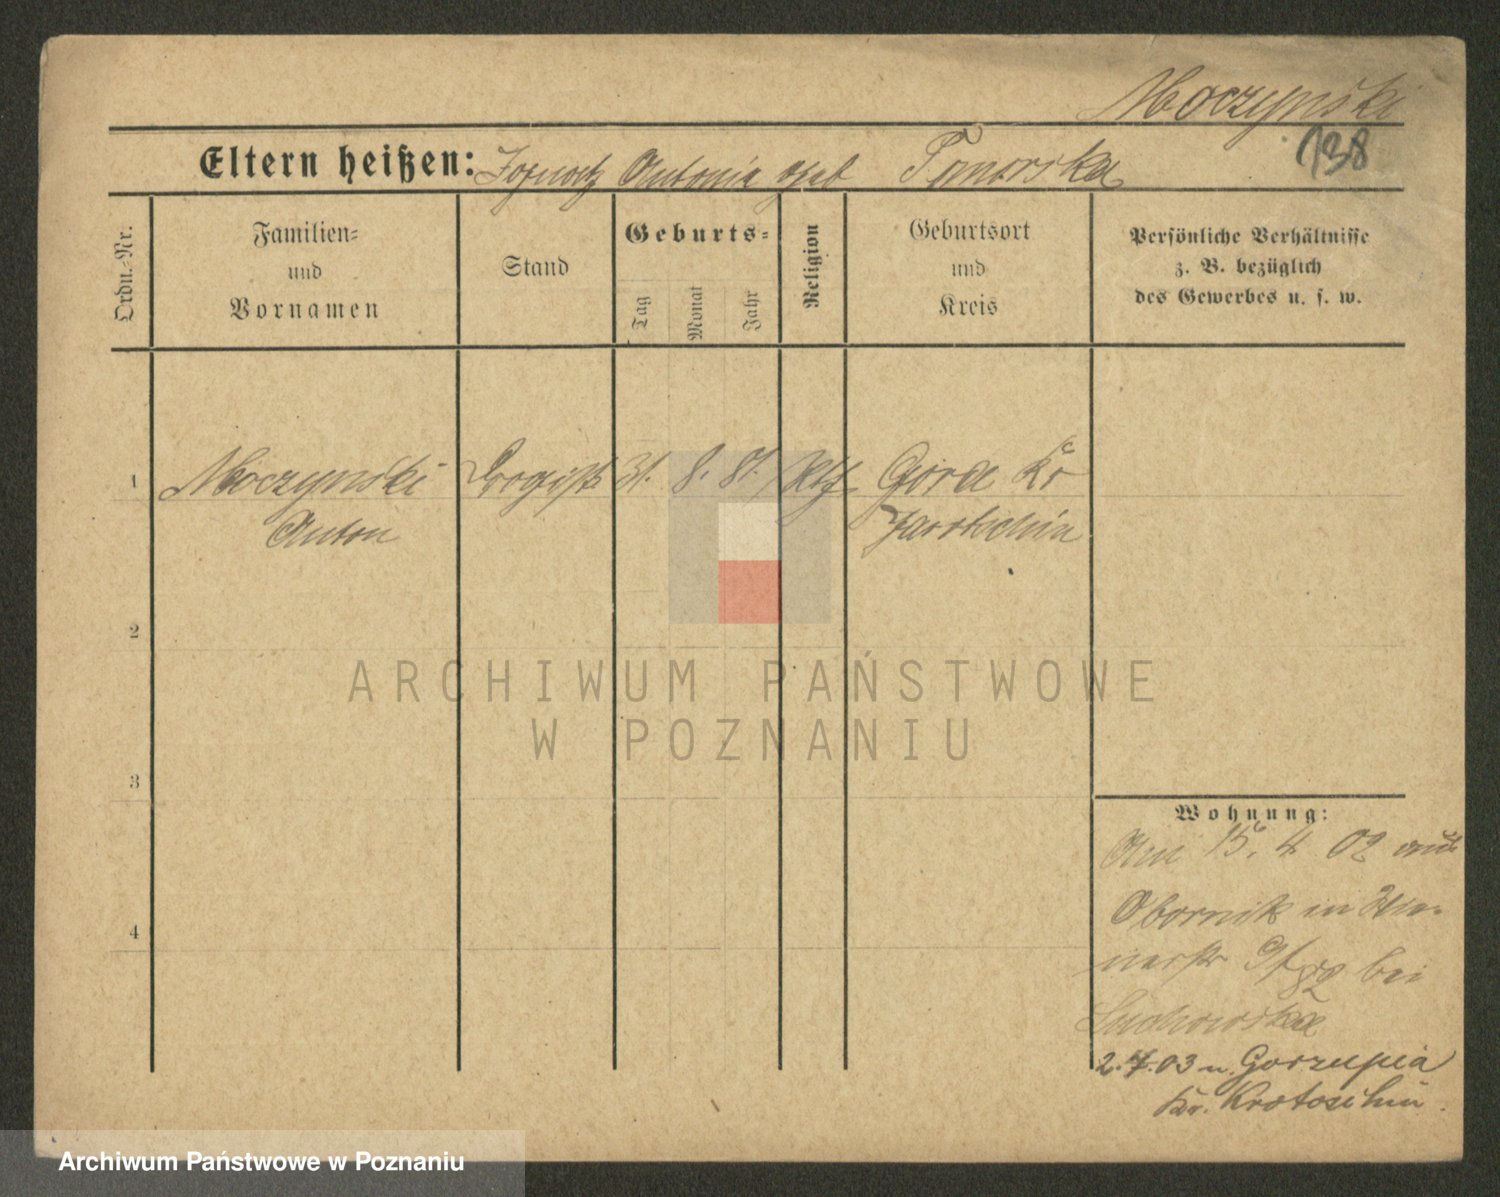 Moczynski
138
Eltern heißen: Antonia geb
Ordn.-Nr.
Familien-
und
Vornamen
Stand
Geburts-
Tag
Monat
Jahr
Religion
Geburtsort
und
Kreis
Persönliche Verhältnisse
z. B. bezüglich
des Gewerbes u. s. w.
1
Moczynski Drogist 31. 8. 81. Kth. Góra Kr
Anton Jarotschin
2
3
4
ARCHIWUM PAŃSTWOWE
W POZNANIU
Wohnung:
Am 15. 4 02 aus
Obornik in Wie-
nerstr bei
Suchowska
2.7.03 n. Gorzupia
Kr. Krotoschin.
Archiwum Państwowe w Poznaniu